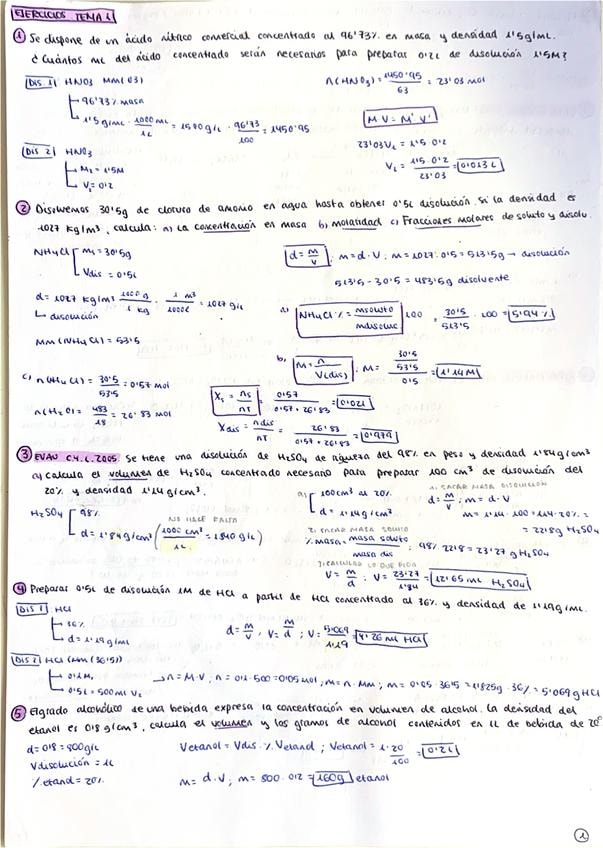 EJERCICIOS TEMA 1
① Se dispone de un ácido nítrico comercial concentrado al 96'73% en masa y densidad 1'5g/mL.
¿Cuántos mL del ácido concentrado serán necesarios para preparar 0'2L de disolución 1'5M?
DIS 1 HNO3 MM(63)
96'73% masa
1'5g/mL · 1000 mL / 1L = 1500g/L · 96'73 / 100 = 1450'95
n(HNO3) = 1450'95 / 63 = 23'03 mol
M V = M' V'
DIS 2 HNO3
M2 = 1'5M
V2 = 0'2
23'03V1 = 1'5·0'2
V1 = 1'5·0'2 / 23'03 = 0'013L
② Disolvemos 30'5g de cloruro de amonio en agua hasta obtener 0'5L disolución. Si la densidad es
1027 kg/m3, calcula: a) La concentración en masa b) molaridad c) Fracciones molares de soluto y disolv.
NH4Cl m1 = 30'5g
Vdis = 0'5L
d = m / V ; m = d·V ; m = 1027·0'5 = 513'5g → disolución
513'5 - 30'5 = 483'5g disolvente
d = 1027 kg/m3 1000 g / 1 kg · 1 m3 / 1000L = 1027 g/L
disolución
a) NH4Cl % = msoluto / mdisoluc 100 , 30'5 / 513'5 · 100 = 5'94%
MM(NH4Cl) = 53'5
b) M = n / V(dis) ; M = 30'5 / 53'5 / 0'5 = 1'14M
c) n(NH4Cl) = 30'5 / 53'5 = 0'57 mol
n(H2O) = 483 / 18 = 26'83 mol
Xs = ns / nT = 0'57 / 0'57 + 26'83 = 0'021
Xdis = ndis / nT = 26'83 / 0'57 + 26'83 = 0'979
③ EVAU C.4.L.2005. Se tiene una disolución de H2SO4 de riqueza del 98% en peso y densidad 1'84g/cm3
a) calcula el volumen de H2SO4 concentrado necesario para preparar 100 cm3 de disolución del
20% y densidad 1'14g/cm3.
H2SO4 98%
NO HACE FALTA
d = 1'84g/cm3 (1000 cm3 / 1L = 1840 g/L)
a) 100cm3 al 20%
d = 1'14g/cm3
1. SACAR MASA DISOLUCIÓN
d = m / V ; m = d·V
m = 1'14·100 = 114·20% =
= 22'8g H2SO4
2. SACAR MASA SOLUTO
% masa = masa soluto / masa dis ; 98% 22'8 = 23'27 g H2SO4
3. CALCULAR LO QUE PIDA
V = m / d ; V = 23'27 / 1'84 = 12'65 mL H2SO4
④ Preparar 0'5L de disolución 1M de HCl a partir de HCl concentrado al 36% y densidad de 1'19g/mL.
DIS 1 HCl
36%
d = 1'19g/mL
d = m / V , V = m / d ; V = 5'069 / 1'19 = 4'26 mL HCl
DIS 2 HCl (Mm (36'5))
0'1M2
0'5L = 500mL V2
→ n = M·V ; n = 0'1·500 = 0'05 mol ; m = n·Mm ; m = 0'05·36'5 = 1'825g · 36% = 5'069g HCl
⑤ El grado alcohólico de una bebida expresa la concentración en volumen de alcohol. La densidad del
etanol es 0'8g/cm3, calcula el volumen y los gramos de alcohol contenidos en 1L de bebida de 20º
d = 0'8 = 800g/L
Vdisolución = 1L
% etanol = 20%
Vetanol = Vdis · % Vetanol ; Vetanol = 1·20 / 100 = 0'2L
m = d·V ; m = 800·0'2 = 160g etanol
1